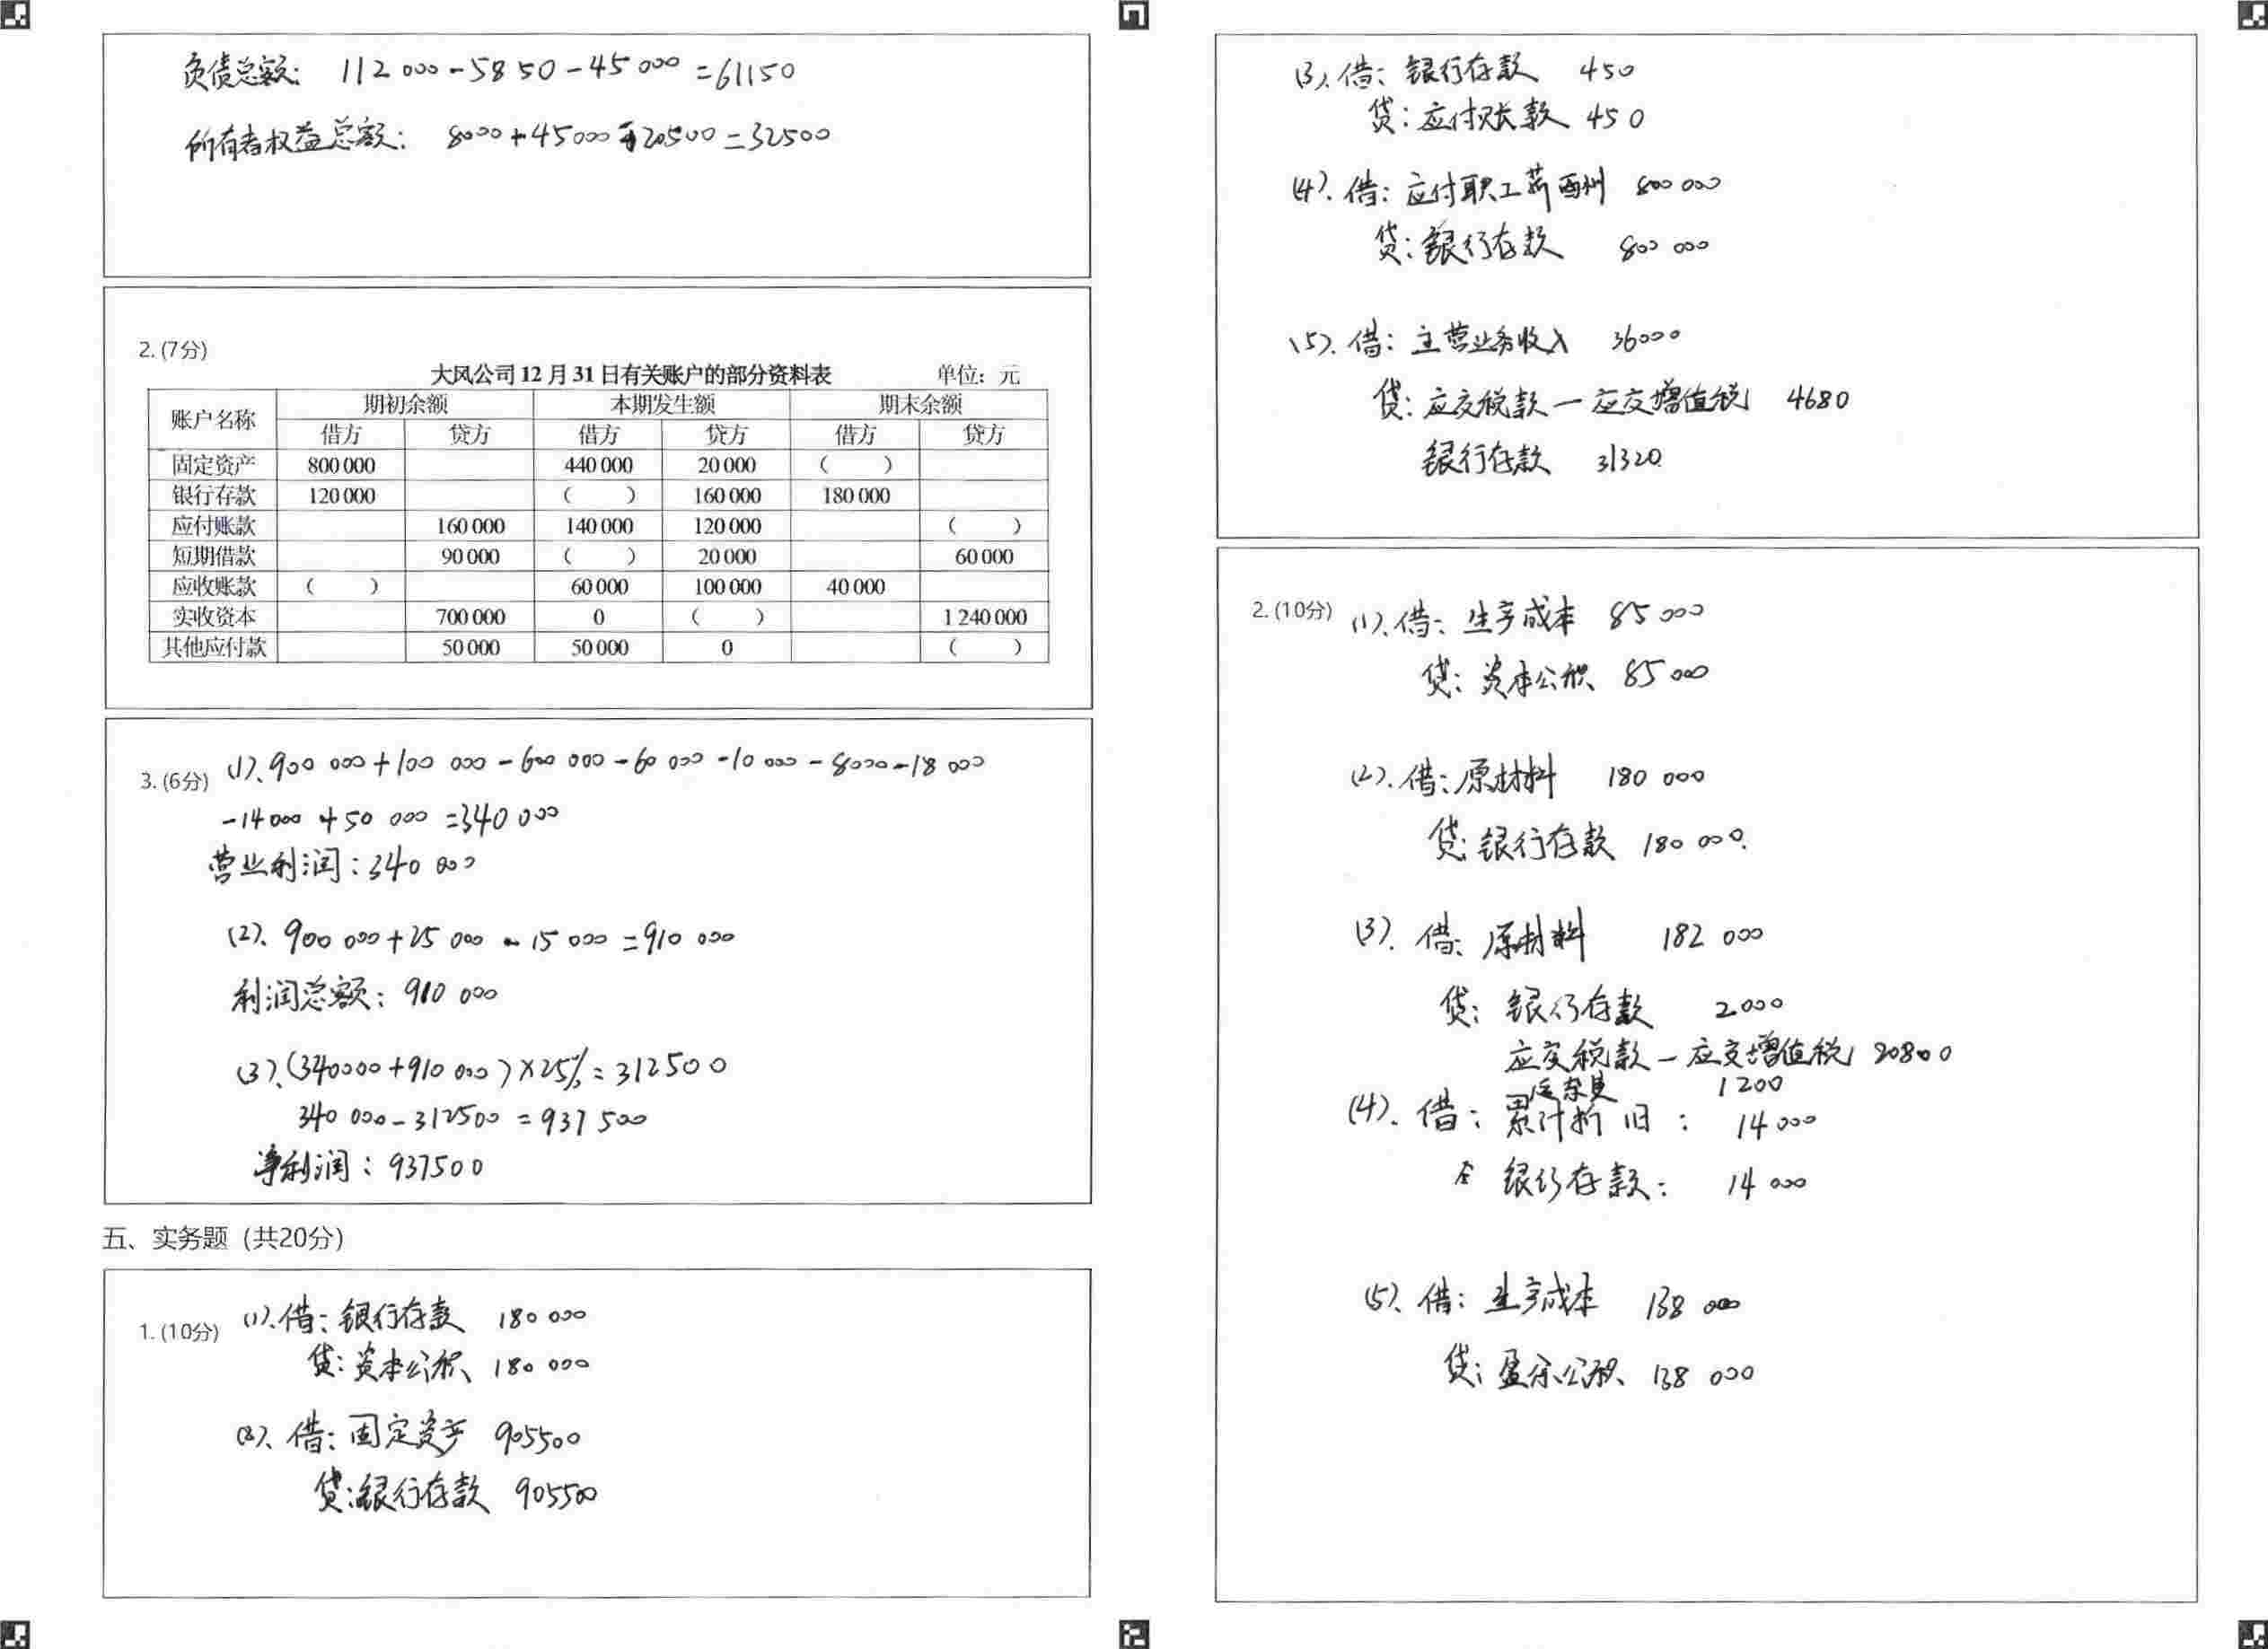 负债总额: 112 000-5850-45000=61150
所有者权益总额: 8000+45000 20500=32500
2. (7分)
大风公司12月31日有关账户的部分资料表 单位：元
账户名称 期初余额 本期发生额 期末余额
借方 贷方 借方 贷方 借方 贷方
固定资产 800 000 440 000 20 000 ( )
银行存款 120 000 ( ) 160 000 180 000
应付账款 160 000 140 000 120 000 ( )
短期借款 90 000 ( ) 20 000 60 000
应收账款 ( ) 60 000 100 000 40 000
实收资本 700 000 0 ( ) 1 240 000
其他应付款 50 000 50 000 0 ( )
3. (6分) (1)、900 000+100 000-600 000-60 000-10 000-8000-18 000
-14000+50 000=340 000
营业利润:340 000
(2)、900 000+25 000-15 000=910 000
利润总额: 910 000
(3)、(340000+910 000)×25%=312500
340 000-312500=937500
净利润: 937500
五、实务题 (共20分)
1. (10分) (1)、借: 银行存款 180 000
贷: 资本公积 180 000
(2)、借: 固定资产 905500
贷:银行存款 905500
(3)、借: 银行存款 450
贷: 应付账款 450
(4)、借: 应付职工薪酬 800 000
贷:银行存款 800 000
(5)、借: 主营业务收入 36000
贷: 应交税款-应交增值税 4680
银行存款 31320
2. (10分) (1)、借: 生产成本 85 000
贷: 资本公积 85 000
(2)、借:原材料 180 000
贷:银行存款 180 000
(3)、借: 原材料 182 000
贷: 银行存款 2000
应交税款-应交增值税 20800
运杂费 1200
(4)、借: 累计折旧: 14000
银行存款: 14 000
(5)、借: 生产成本 138 000
贷: 盈余公积 138 000